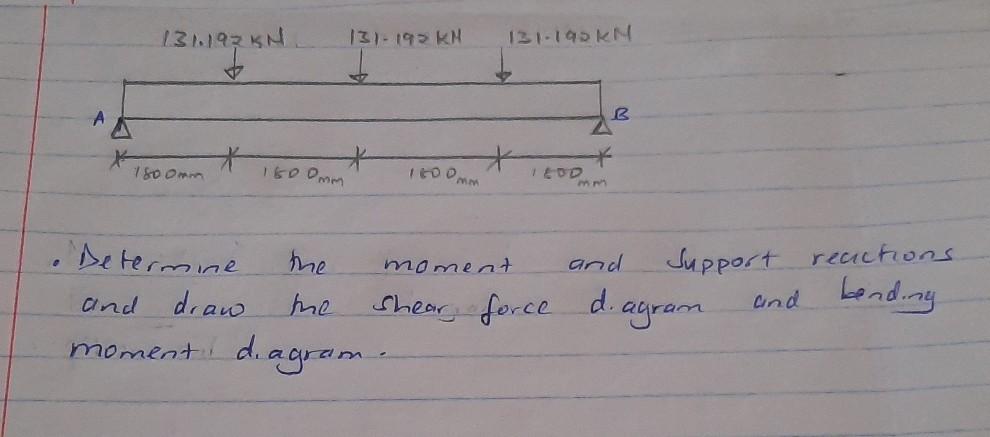 131.192 KN 131.192 KN 131.192 KN
A B
1800mm 1800mm 1800mm 1800mm
. Determine the moment and support reactions
and draw the shear force diagram and bending
moment diagram.